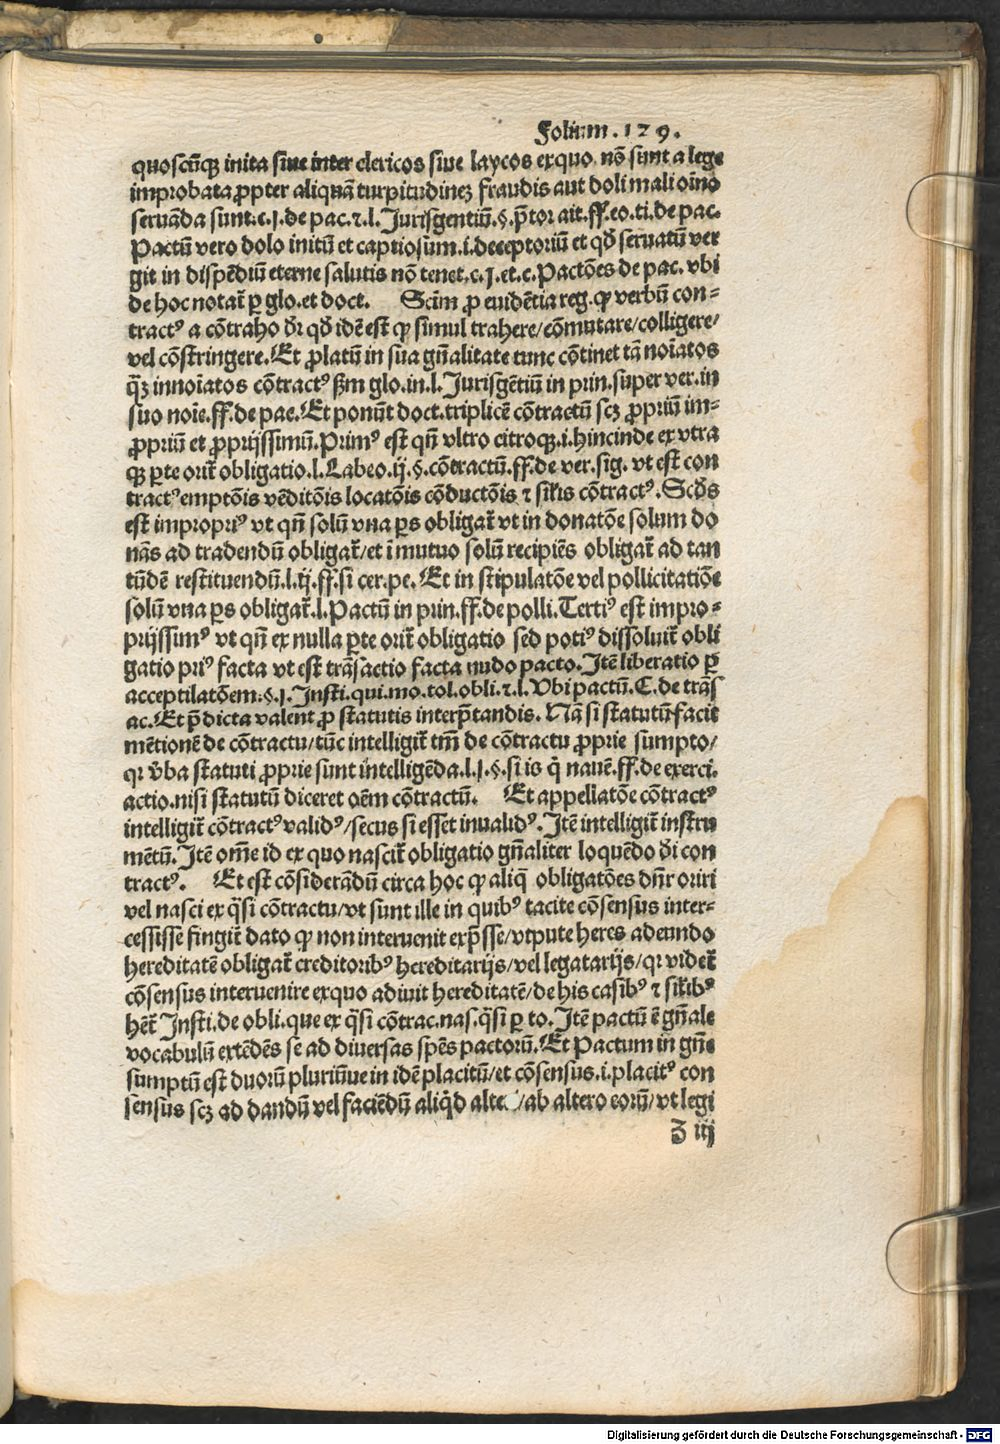 Folium.129.
quoscūq̄ inita siue inter clericos siue laycos exquo nō sunt a lege
improbata ꝓpter aliquā turpitudinez fraudis aut doli mali oīno
seruāda sunt.c.j.de pac.⁊.l.Jurisgentiū.§.p̄tor ait.ff.eo.ti.de pac.
Pactū vero dolo initū et captiosum.i.deceptoriū et qd̄ seruatū ver
git in dispēdiū eterne salutis nō tenet.c.j.et.c.Pactōes de pac. vbi
de hoc notat̄ ꝑ glo.et doct. Scīm ꝓ euidētia reg. ꝙ verbū con⸗
tractꝰ a cōtraho dr̄ qd̄ idē est ꝙ simul trahere/cōmutare/colligere/
vel cōstringere.Et ꝓlatū in sua gn̄alitate tunc cōtinet tā noīatos
q̄ꝫ innoīatos cōtractꝰ ẜm glo.in.l.Jurisgētiū in prin.super ver.in
suo noīe.ff.de pac.Et ponūt doct.triplicē cōtractū scꝫ ꝓpriū im⸗
ꝓpriū et ꝓprijssimū.Primꝰ est qn̄ vltro citroqꝫ.i.hincinde ex vtra
qꝫ ꝑte orit̄ obligatio.l.Labeo.ij.§.cōtractū.ff.de ver.sig. vt est con
tractꝰ emptōis vēditōis locatōis cōductōis ⁊ sil̄is cōtractꝰ.Scd̄s
est impropriꝰ vt qn̄ solū vna ꝑs obligat̄ vt in donatōe solum do
nās ad tradendū obligat̄/et ī mutuo solū recipiēs obligat̄ ad tan
tūdē restituendū.l.ij.ff.si cer.pe. Et in stipulatōe vel pollicitatiōe
solū vna ꝑs obligat̄.l.Pactū in prin.ff.de polli.Tertiꝰ est impro⸗
prijssimꝰ vt qn̄ ex nulla ꝑte orit̄ obligatio sed potiꝰ dissoluit̄ obli
gatio priꝰ facta vt est trāsactio facta nudo pacto.Jtē liberatio ꝑ
acceptilatōem.§.j.Jnsti.qui.mo.tol.obli.⁊.l.Vbi pactū.C.de trās
ac.Et p̄dicta valent ꝓ statutis interp̄tandis. Nā si statutū facit
mētionē de cōtractu/tūc intelligit̄ tm̄ de cōtractu ꝓprie sumpto/
qꝛ v̄ba statuti ꝓprie sunt intelligēda.l.j.§.si is q̄ nauē.ff.de exerci.
actio.nisi statutū diceret oēm cōtractū. Et appellatōe cōtractꝰ
intelligit̄ cōtractꝰ validꝰ/secus si esset inualidꝰ.Jtē intelligit̄ instru
mētū.Jtē om̄e id ex quo nascit̄ obligatio gn̄aliter loquēdo dr̄ con
tractꝰ. Et est cōsiderādū circa hoc ꝙ aliq̄ obligatōes dn̄r oriri
vel nasci ex q̄si cōtractu/vt sunt ille in quibꝰ tacite cōsensus inter⸗
cessisse fingit̄ dato ꝙ non interuenit exp̄sse/vtpute heres adeundo
hereditatē obligat̄ creditoribꝰ hereditarijs/vel legatarijs/qꝛ videt̄
cōsensus interuenire exquo adiuit hereditatē/de his casibꝰ ⁊ sil̄ibꝰ
het̄ Jnsti.de obli.que ex q̄si cōtrac.nas.q̄si ꝑ to. Jtē pactū ē gn̄ale
vocabulū extēdēs se ad diuersas spēs pactorū.Et Pactum in gn̄e
sumptū est duorū pluriūue in idē placitū/et cōsensus.i.placitꝰ con
sensus scꝫ ad dandū vel faciēdū aliqd̄ /ab altero eorū/vt legi
Z iij
Digitalisierung gefördert durch die Deutsche Forschungsgemeinschaft - DFG